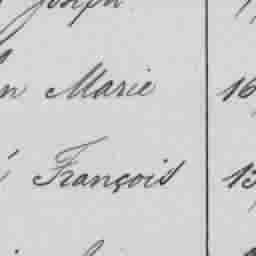 Joseph
n Marie 16
é François 13